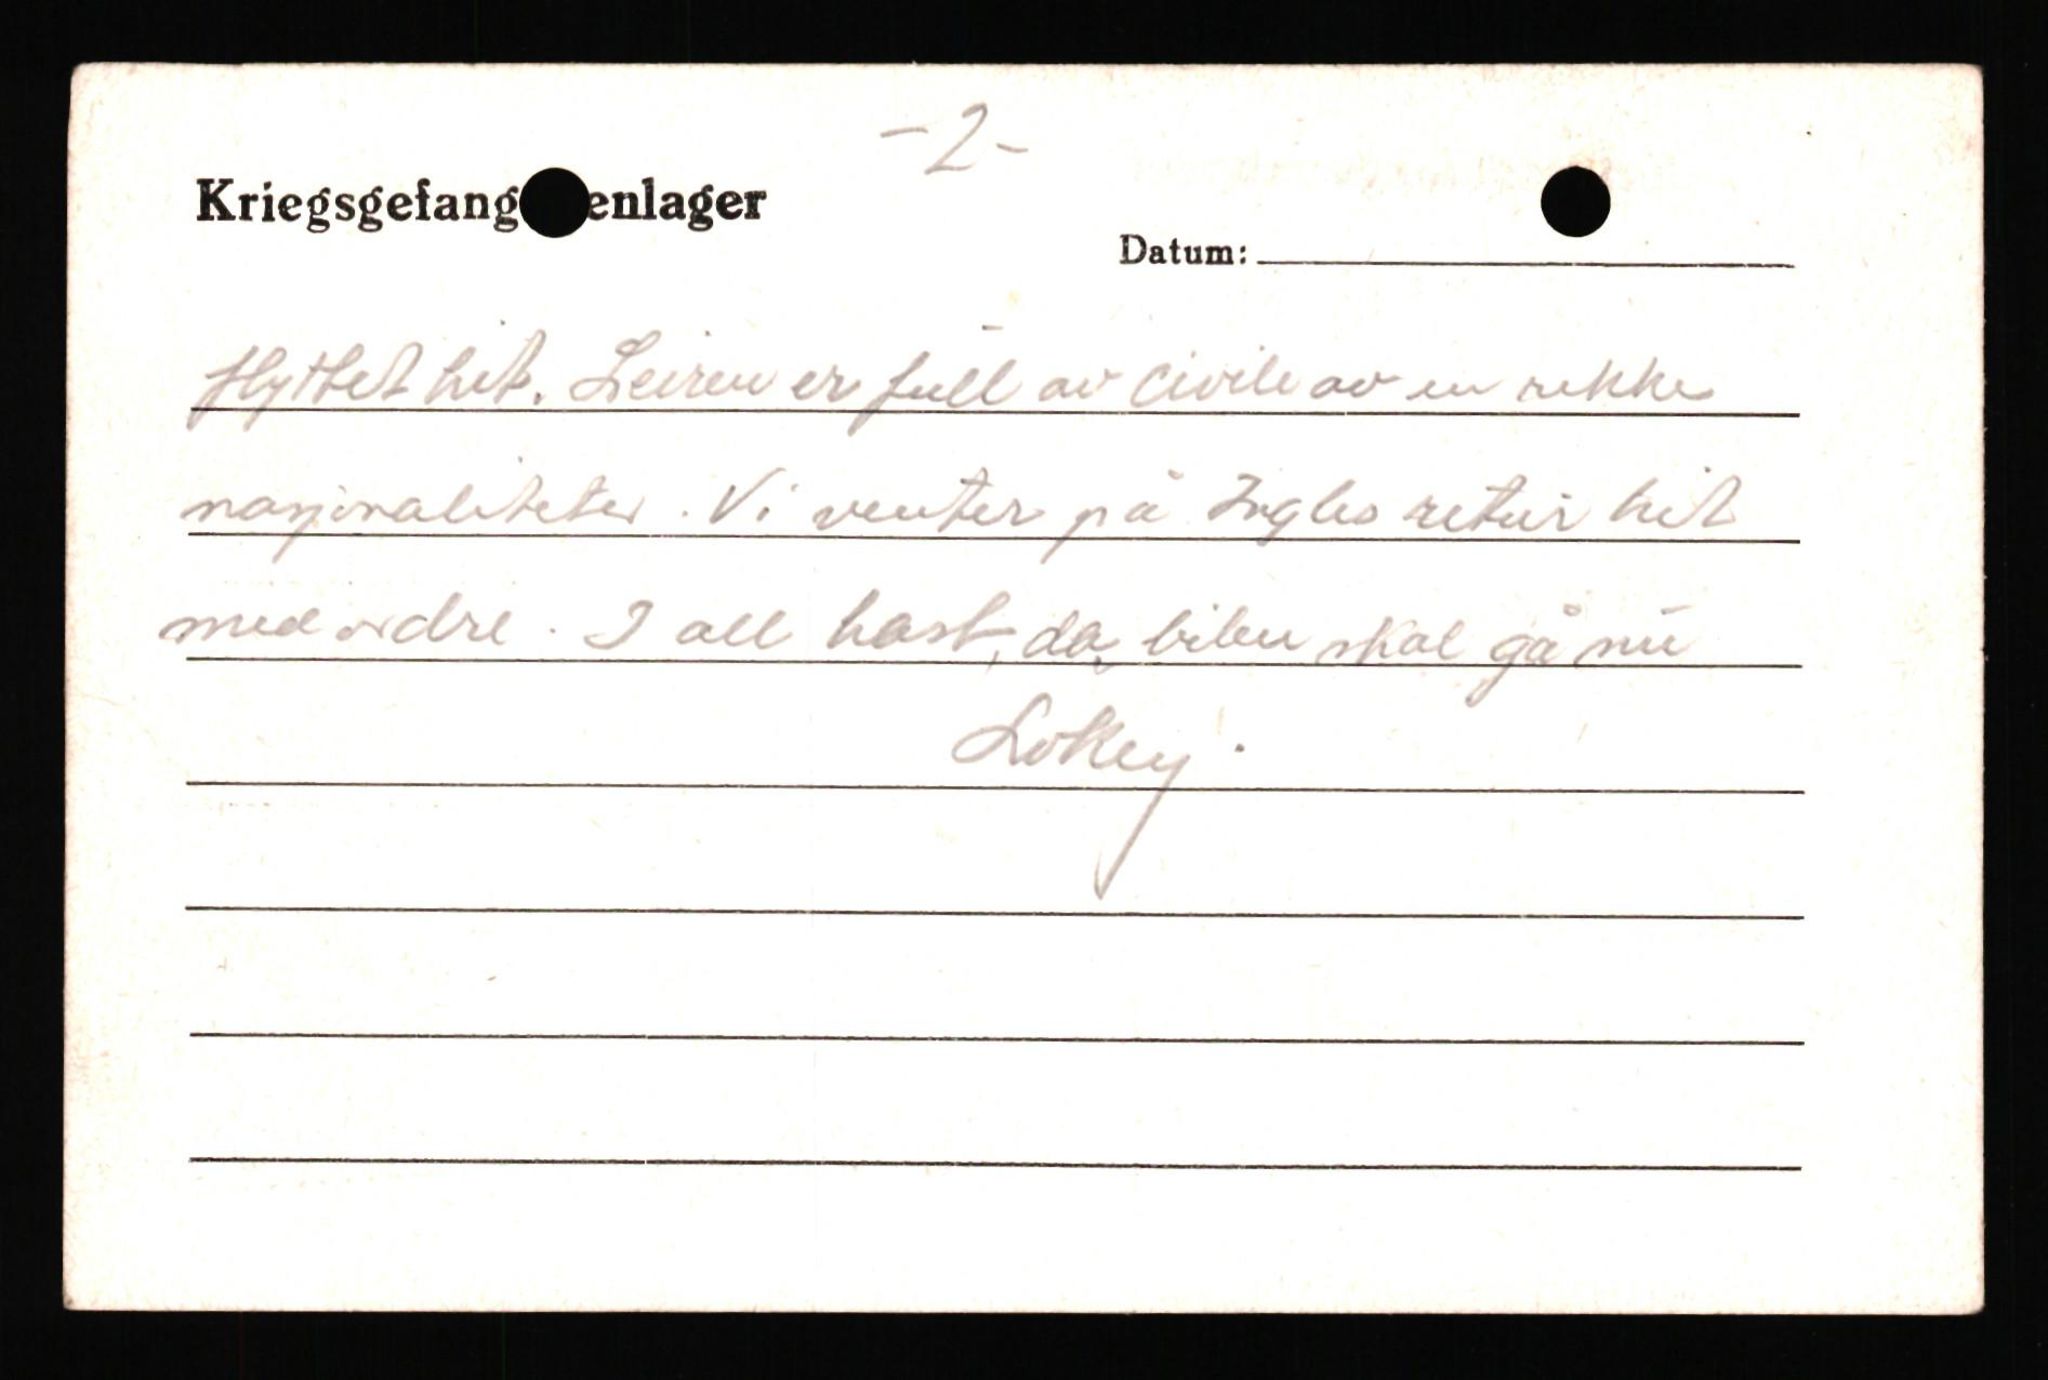 -2-
Kriegsgefang enlager
Datum:
flyttet hit. Leiren er full av civile av en rekke
nasjonaliteter. Vi venter på Ingles retur hit
med ordre. I all hast, da bilen skal gå nu